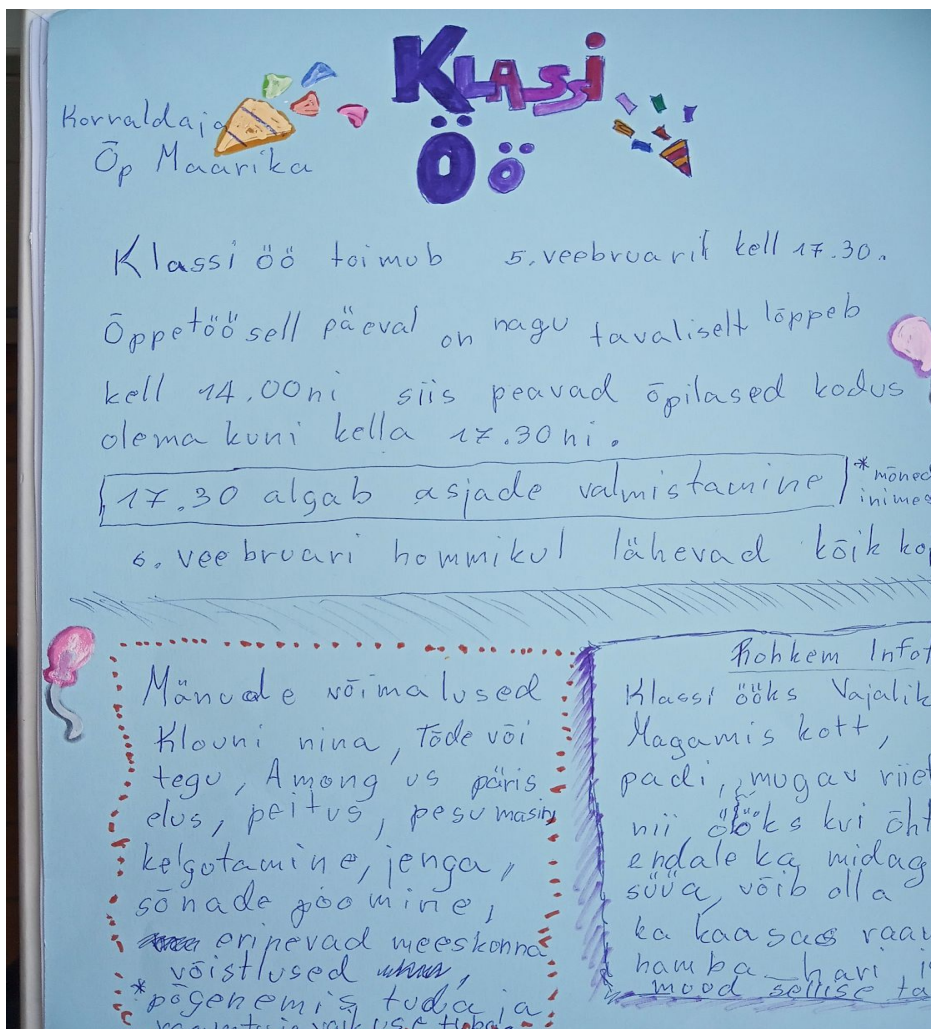 Klassi
Öö
Korraldaja
Õp Maarika
Klassi öö toimub 5. veebruaril kell 17.30.
Õppetöösell päeval on nagu tavaliselt lõppeb
kell 14.00ni siis peavad õpilased kodus
olema kuni kella 17.30ni.
17.30 algab asjade valmistamine
*mõned
inimes
6. veebruari hommikul lähevad kõik ko
Mänude võimalused
Klouni nina, Tõde või
tegu, Among us päris
elus, peitus, pesumasin
kelgotamine, jenga,
sõnade poomine,
eripevad meeskonna
võistlused
*põgenemis tudaja
Rohkem Infot
Klassi ööks Vajalik
Magamis kott,
padi, mugav riiet
nii, ööks kui õht
endale ka midag
süüa, võib olla
ka kaasas raam
hamba hari,
mood sellise ta